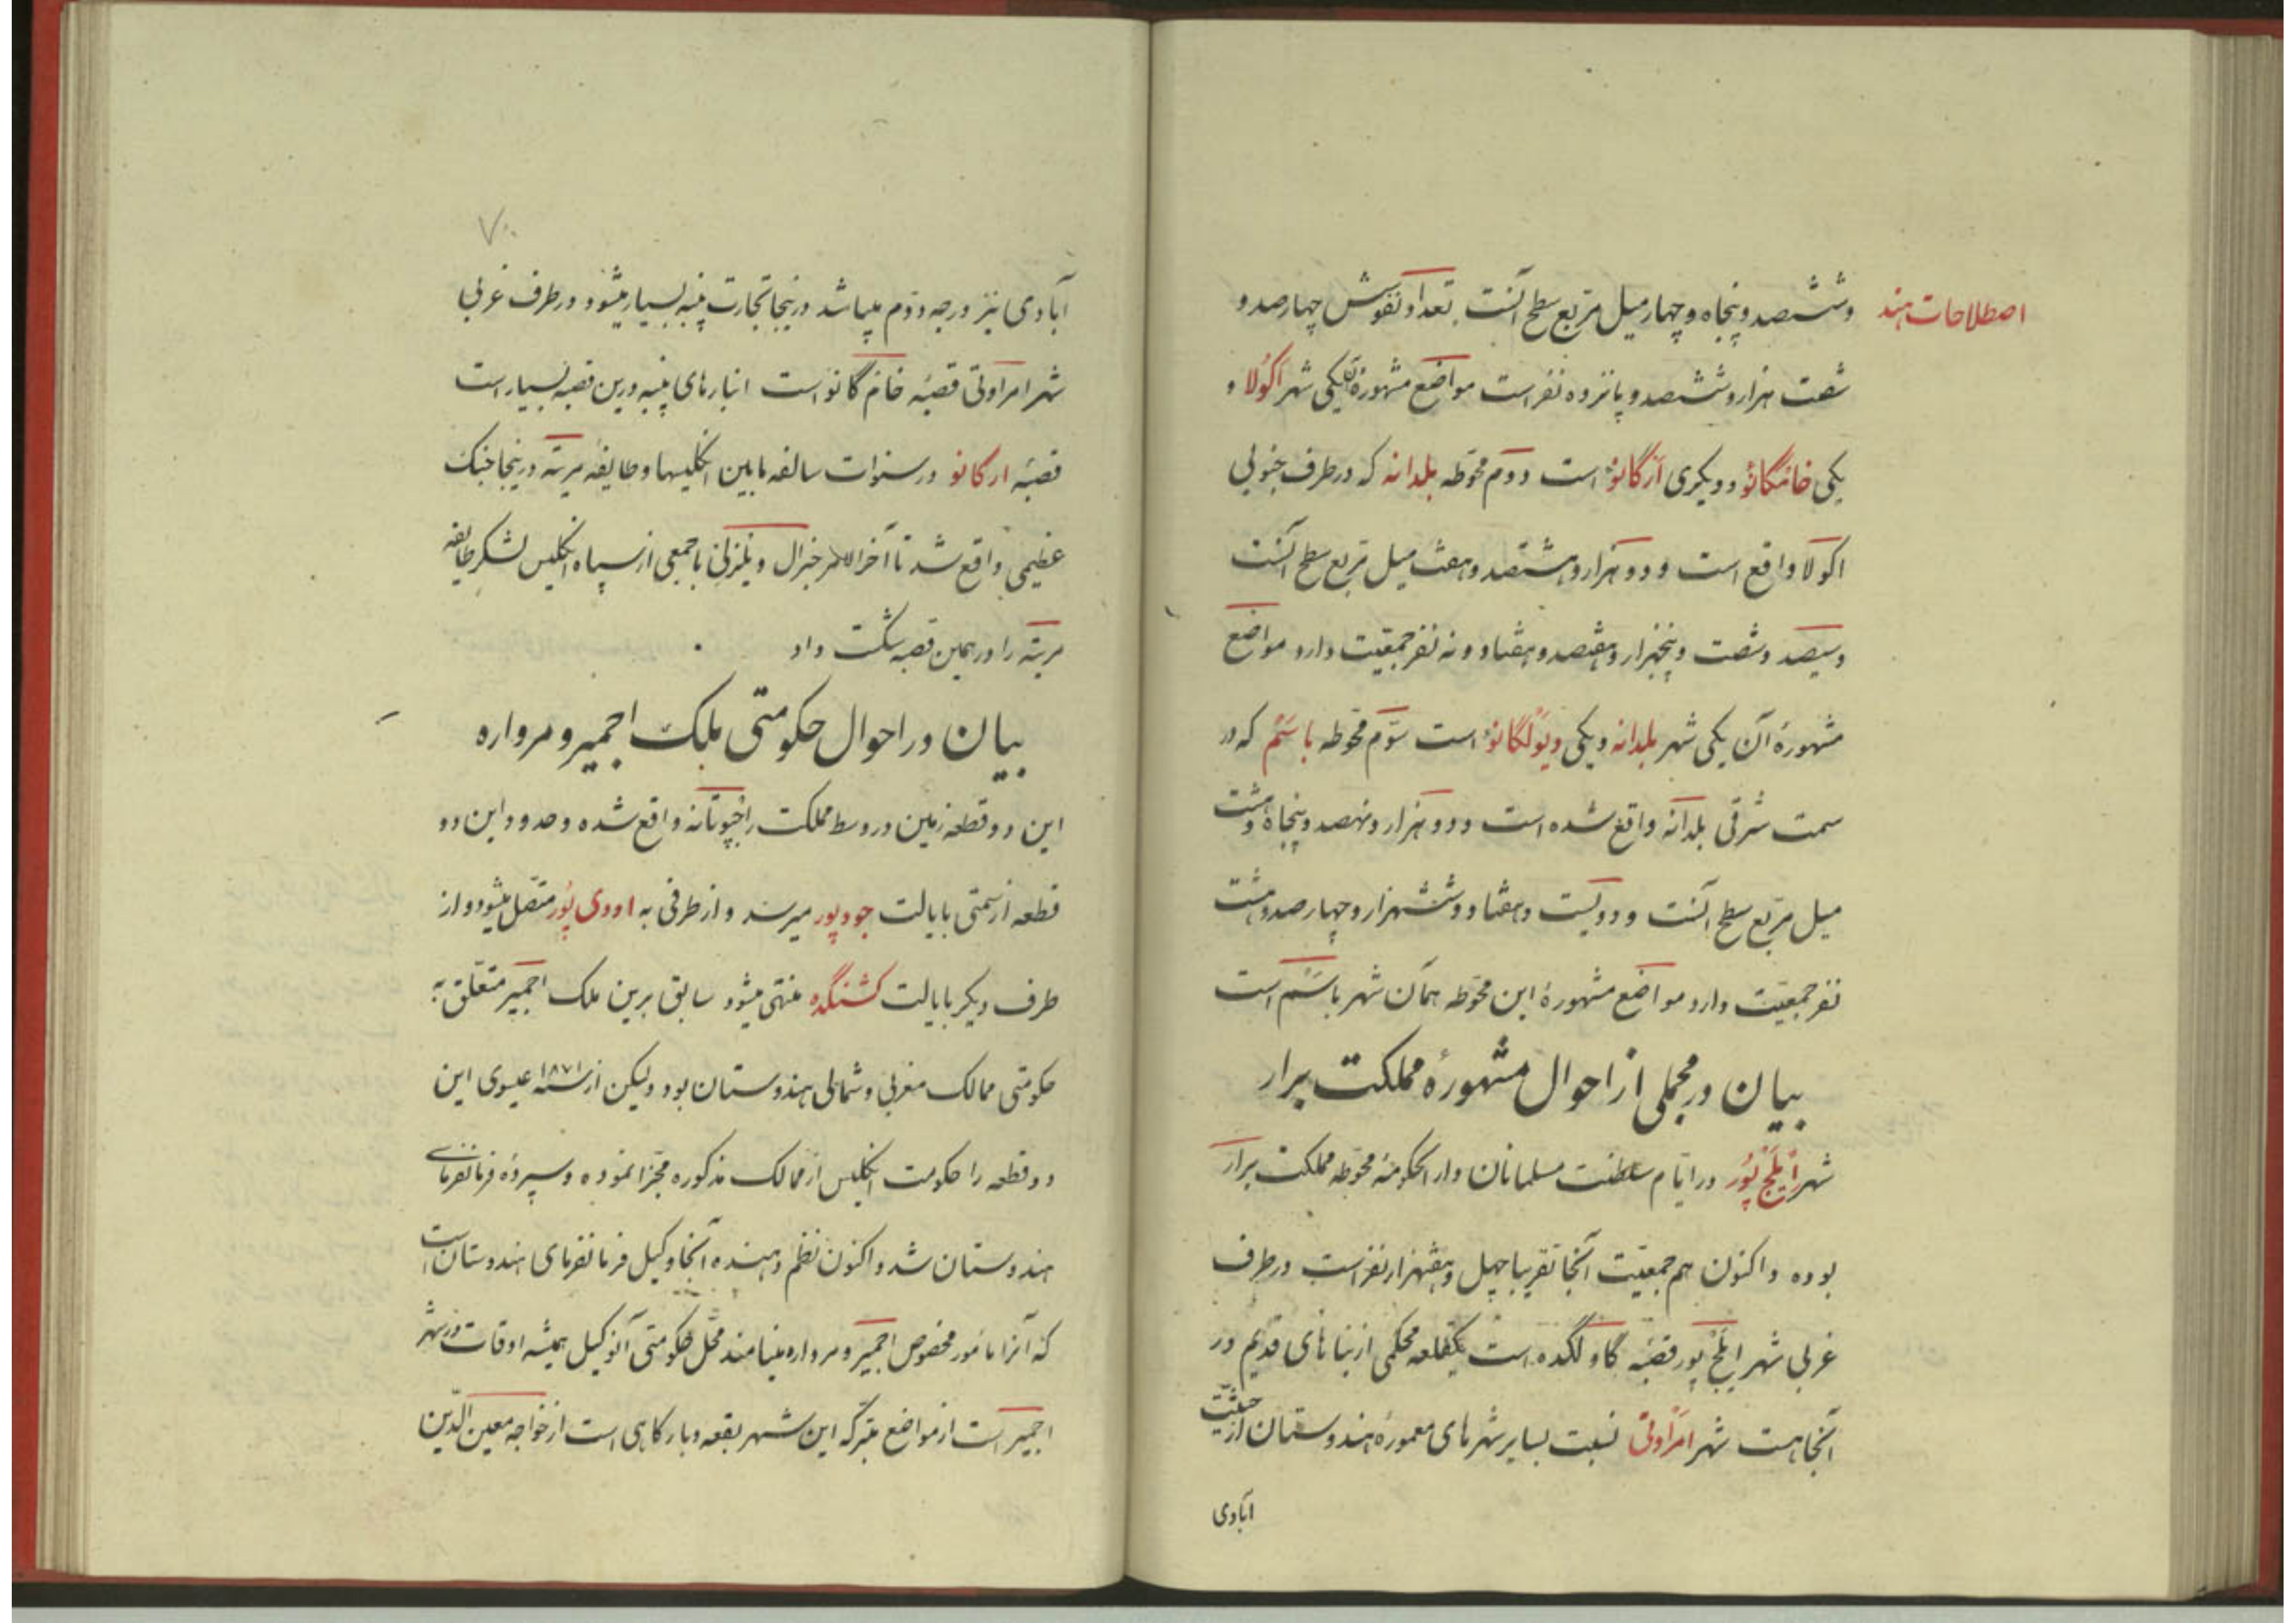 اصطلاحات هند
وششصد و پنجاه و چهار میل مربع سطح آنست تعداد نفوسش چهارصد و
شصت هزار و ششصد و پانزده نفر است مواضع مشهورهٔ آن یکی شهر اکولا و
یکی خامگانو و دیگری آرگانو است دوم محوّطه بلدانه که در طرف جنوبی
اکولا واقع است و دو هزار و هشتصد و هفت میل مربع سطح آنست
و سیصد و شصت و پنجهزار و هفتصد و هفتاد و نه نفر جمعیّت دارد مواضع
مشهورهٔ آن یکی شهر بلدانه و یکی دیولگانو است سوّم محوّطه باسَم که در
سمت شرقی بلدانه واقع شده است و دو هزار و نهصد و پنجاه و هشت
میل مربّع سطح آنست و دویست و هفتاد و ششهزار و چهارصد و هشت
نفر جمعیّت دارد مواضع مشهورهٔ این محوّطه همان شهر باسَم است
بیان در مجملی از احوال مشهورهٔ مملکت برار
شهر اِیلَچ پُور در ایّام سلطنت مسلمانان دار الحکومهٔ محوّطه مملکت برار
بوده و اکنون هم جمعیّت آنجا تقریباً چهل و هفتهزار نفر است در طرف
غربی شهر ایلچ پور قصبهٔ گاولگده است یکقلعه محکمی از بناهای قدیم در
آنجا هست شهر امراوتی نسبت بسایر شهرهای معمورهٔ هندوستان از حیثیّت
آبادی
۷۰
آبادی نیز درجه دوّم میباشد در اینجا تجارت پنبه بسیار میشود در طرف غربی
شهر امراوتی قصبهٔ خام گانو است انبارهای پنبه درین قصبه بسیار است
قصبهٔ ارگانو در سنوات سالفه مابین انگلیسها و طایفهٔ مریته در اینجا جنگ
عظیمی واقع شد تا آخر الامر جنرال ویلزلی با جمعی از سپاه انگلیس لشکر طایفه
مریته را در همین قصبه شکست داد
بیان در احوال حکومتی ملک اجمیر و مرواره
این دو قطعه زمین در وسط مملکت راجپوتانه واقع شده و حدود این دو
قطعه از سمتی بایالت جودپور میرسد و از طرفی به اودی پُور متصل میشود و از
طرف دیگر بایالت کشنگده منتهی میشود سابق برین ملک اجمیر متعلّق به
حکومتی ممالک مغربی و شمالی هندوستان بود ولیکن از سنه ۱۸۷۱ عیسوی این
دو قطعه را حکومت انگلیس از ممالک مذکوره مجزّا نموده و سپرده فرمانفرمای
هندوستان شد و اکنون نظم دهنده آنجا وکیل فرمانفرمای هندوستان است
که آنرا مأمور مخصوص اجمیر و مرواره مینامند محلّ حکومتی آنوکیل همیشه اوقات در شهر
اجمیر است از مواضع متبرّکه این شهر بقعه و بارگاهی است از خواجه معین الدّین